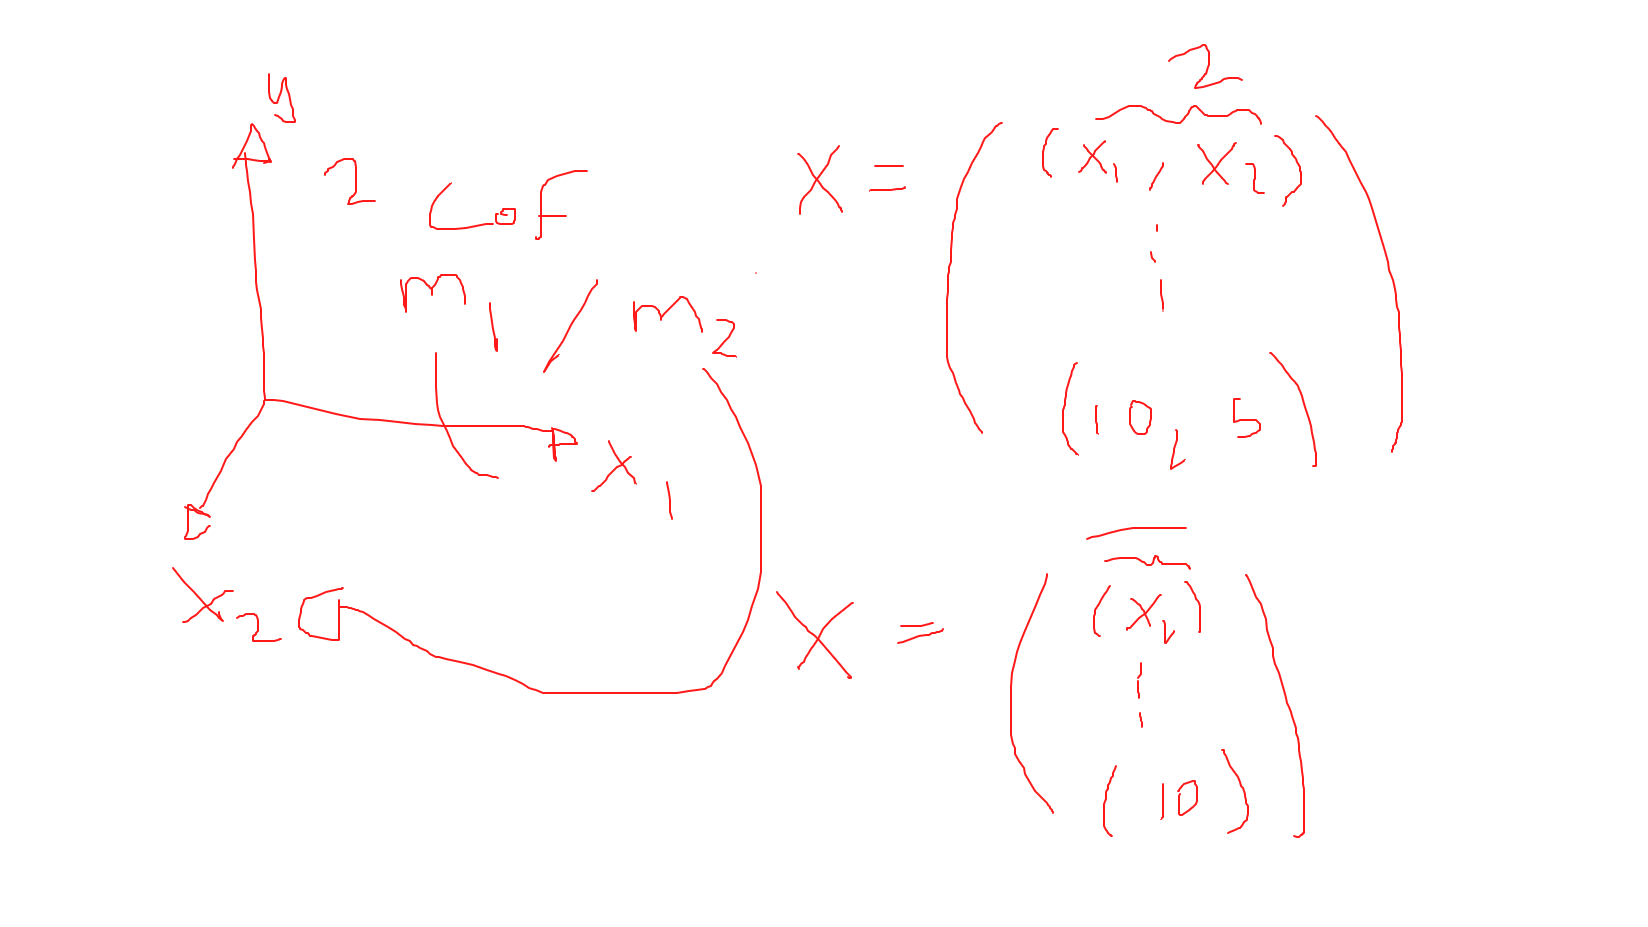 y
2 Cof
m1 / m2
x1
x2
2
X = ( (x1, x2)
⋮
(10, 5) )
X = ( (x1)
⋮
(10) )